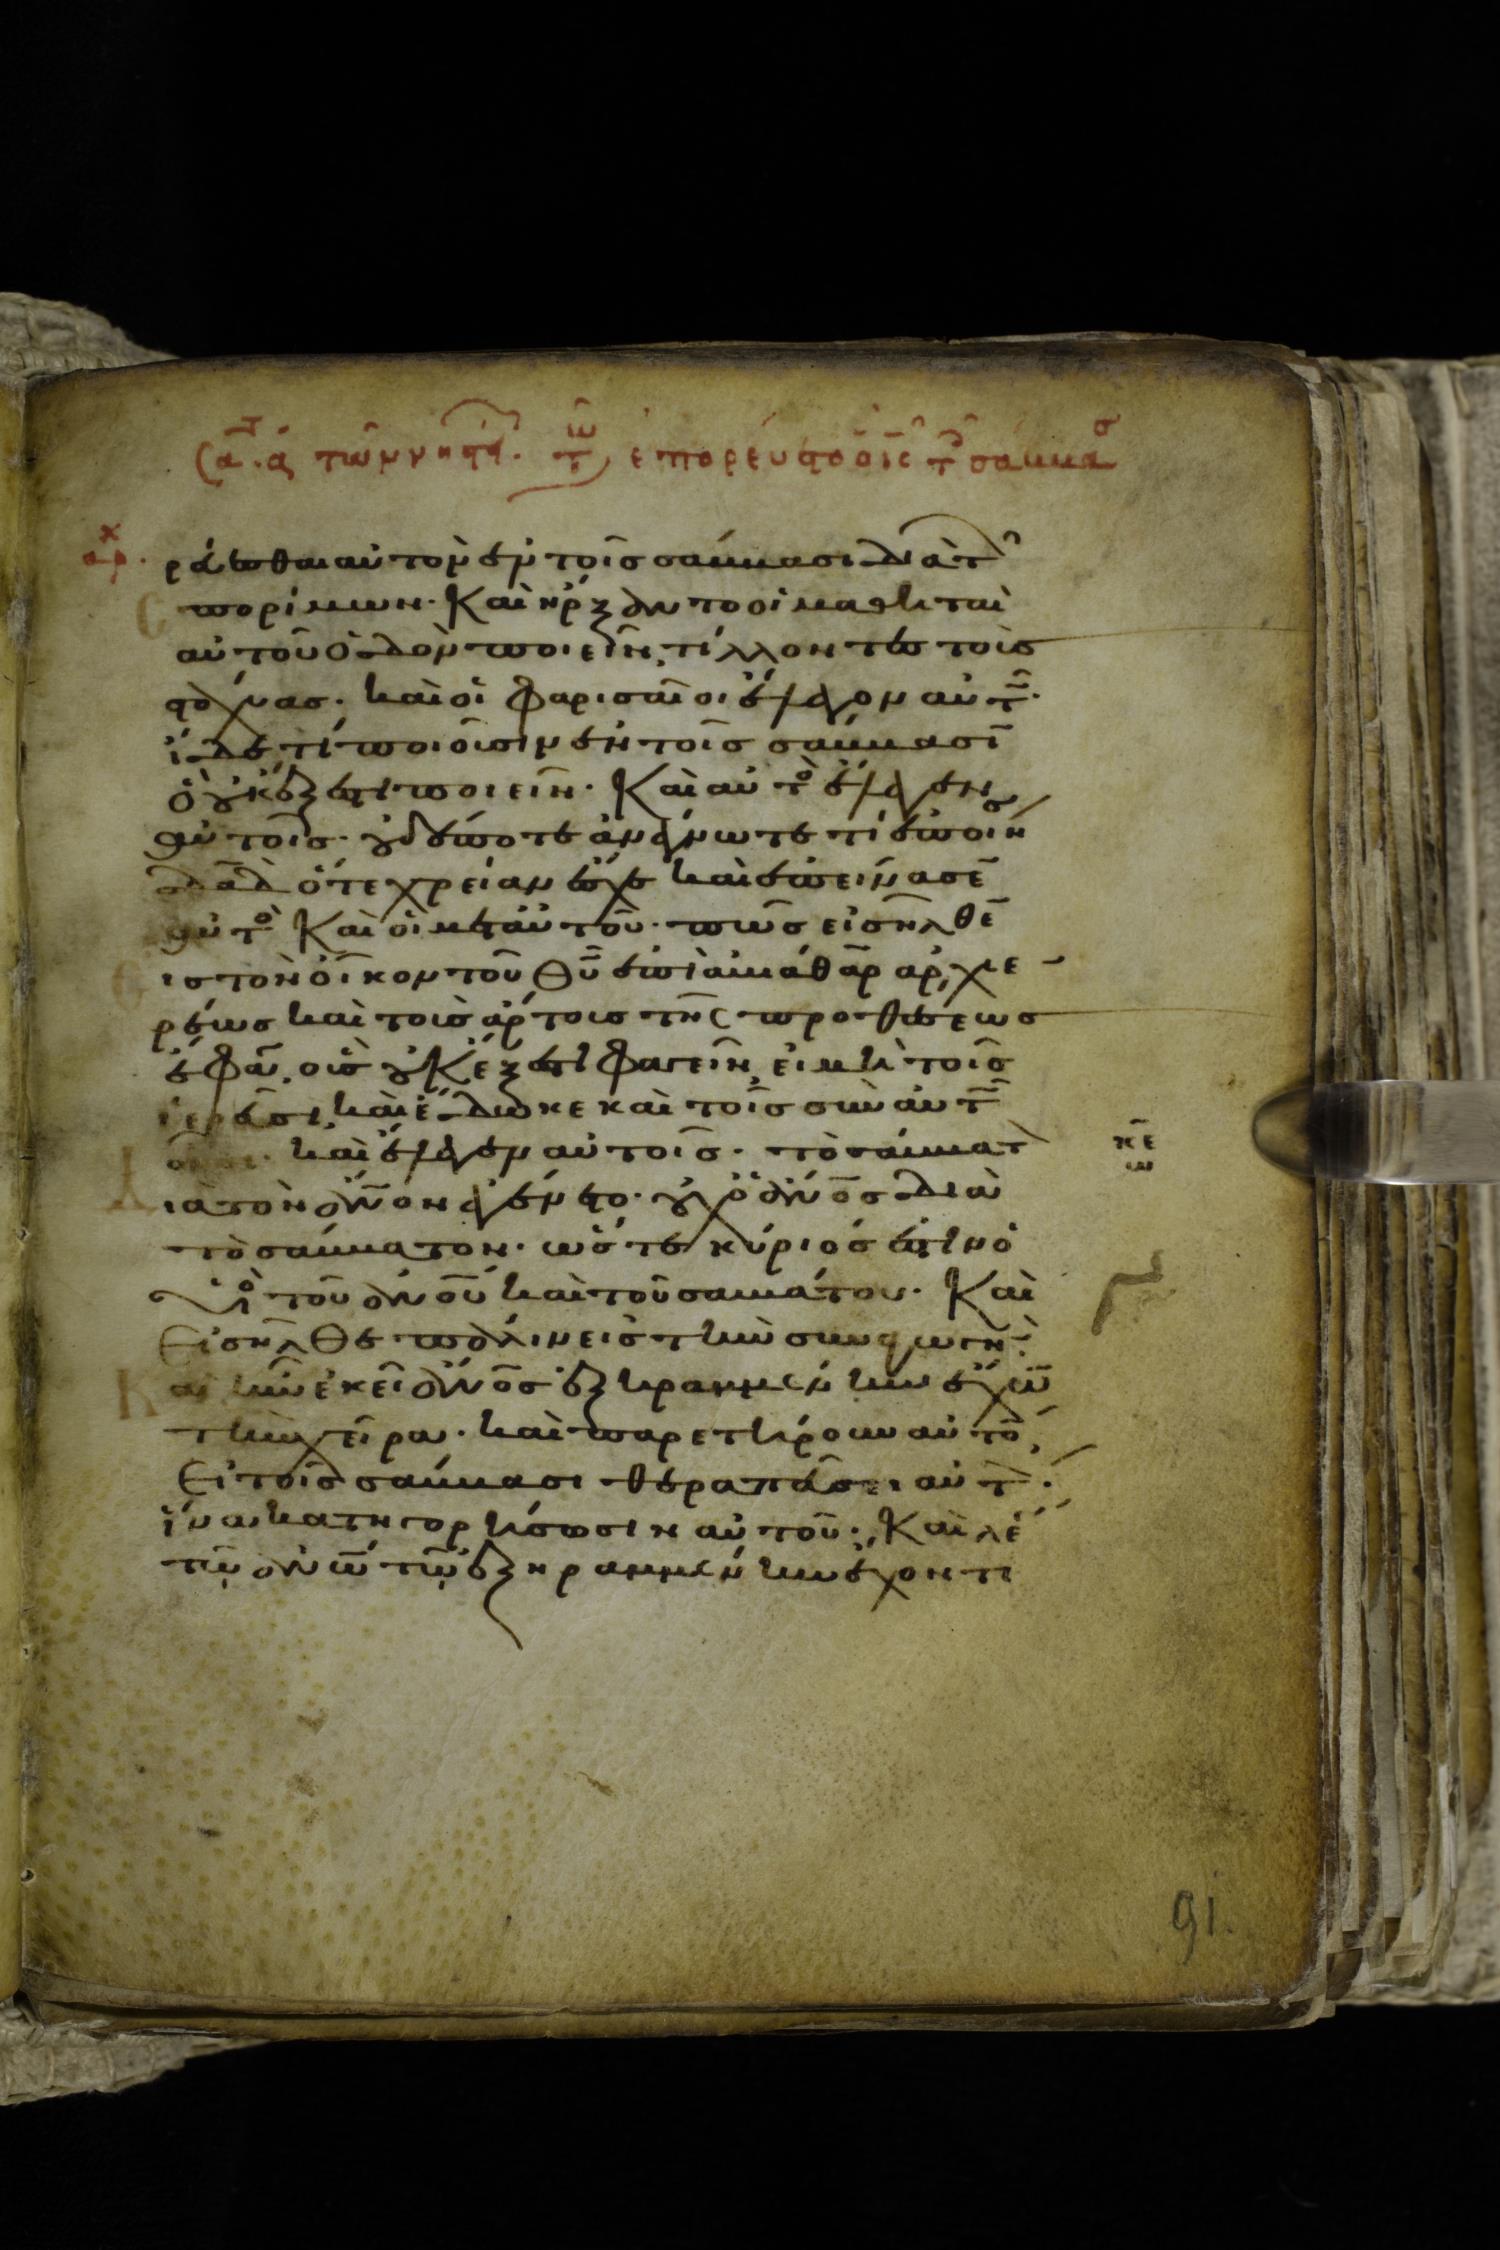 ράγεσθαι αὐτὸν ἐν τοῖς σάββασι διὰ τῶ
σπορίμων. Καὶ ἤρξαντο οἱ μαθηταὶ
αὐτοῦ ὁδὸν ποιεῖν, τίλλοντες τοὺς
στάχυας. καὶ οἱ φαρισαῖοι ἔλεγον αὐτῶ.
ἴδε τί ποιοῦσιν ἐν τοῖς σάββασῖ
ὃ οὐκ ἔξεστι ποιεῖν. Καὶ αὐτὸ ἔλεγεν
αὐτοῖς. οὐδέποτε ἀνέγνωτε τί ἐποίησεν
δᾱδ ὅτε χρείαν ἔσχε καὶ ἐπείνασε
αὐτὸ Καὶ οἱ μετ' αὐτοῦ. πῶς εἰσῆλθε
ις τὸν οἶκον τοῦ θῡ ἐπὶ ἀβιάθαρ ἀρχιε
ρέως καὶ τοὺς ἄρτους τῆς προθέσεως
ἔφαγεν, οὓς οὐκ ἔξεστι φαγεῖν, εἰ μὴ τοῖς
ἱερεῦσι, καὶ ἔδωκε καὶ τοῖς σὺν αὐτῶ
οὖσι. καὶ ἔλεγεν αὐτοῖς. τὸ σάββατ
ιὰ τὸν ἀνον ἐγένετο. οὐχ ὁ ἀνος διὰ
τὸ σάββατον. ὥστε κύριός ἐστιν ὁ
υἱὸ τοῦ ἀνου καὶ τοῦ σαββάτου. Καὶ
Εἰσῆλθε πάλιν εἰς τὴν συναγωγήν.
αὶ ἦν ἐκεῖ ἀνος ἐξηραμμένην ἔχων
τὴν χεῖρα. καὶ παρετήρουν αὐτὸ,
Εἰ τοῖς σάββασι θεραπεύσει αὐτὸ.
ἵνα κατηγορήσωσιν αὐτοῦ. Καὶ λέ
τῷ ἀνω τῷ ἐξηραμμένην ἔχοντι
91.